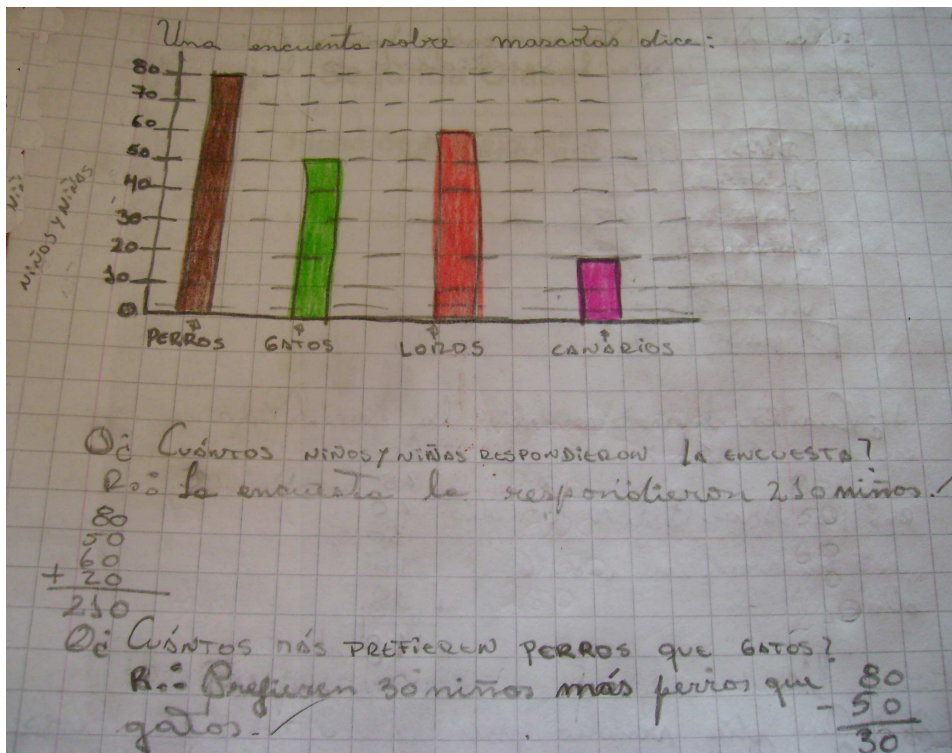 Una encuenta sobre mascotas dice:
80
70
60
50
40
30
20
10
0
NIÑOS Y NIÑOS
NIÑ
PERROS GATOS LOROS CANÁRIOS
¿CUÁNTOS NIÑOS Y NIÑAS RESPONDIERON LA ENCUESTA?
R.: La encuesta la respondieron 210 niños.
80
50
60
+ 20
210
¿CUÁNTOS MÁS PREFIEREN PERROS QUE GATOS?
R.: Prefieren 30 niños más perros que
gatos.
80
- 50
30